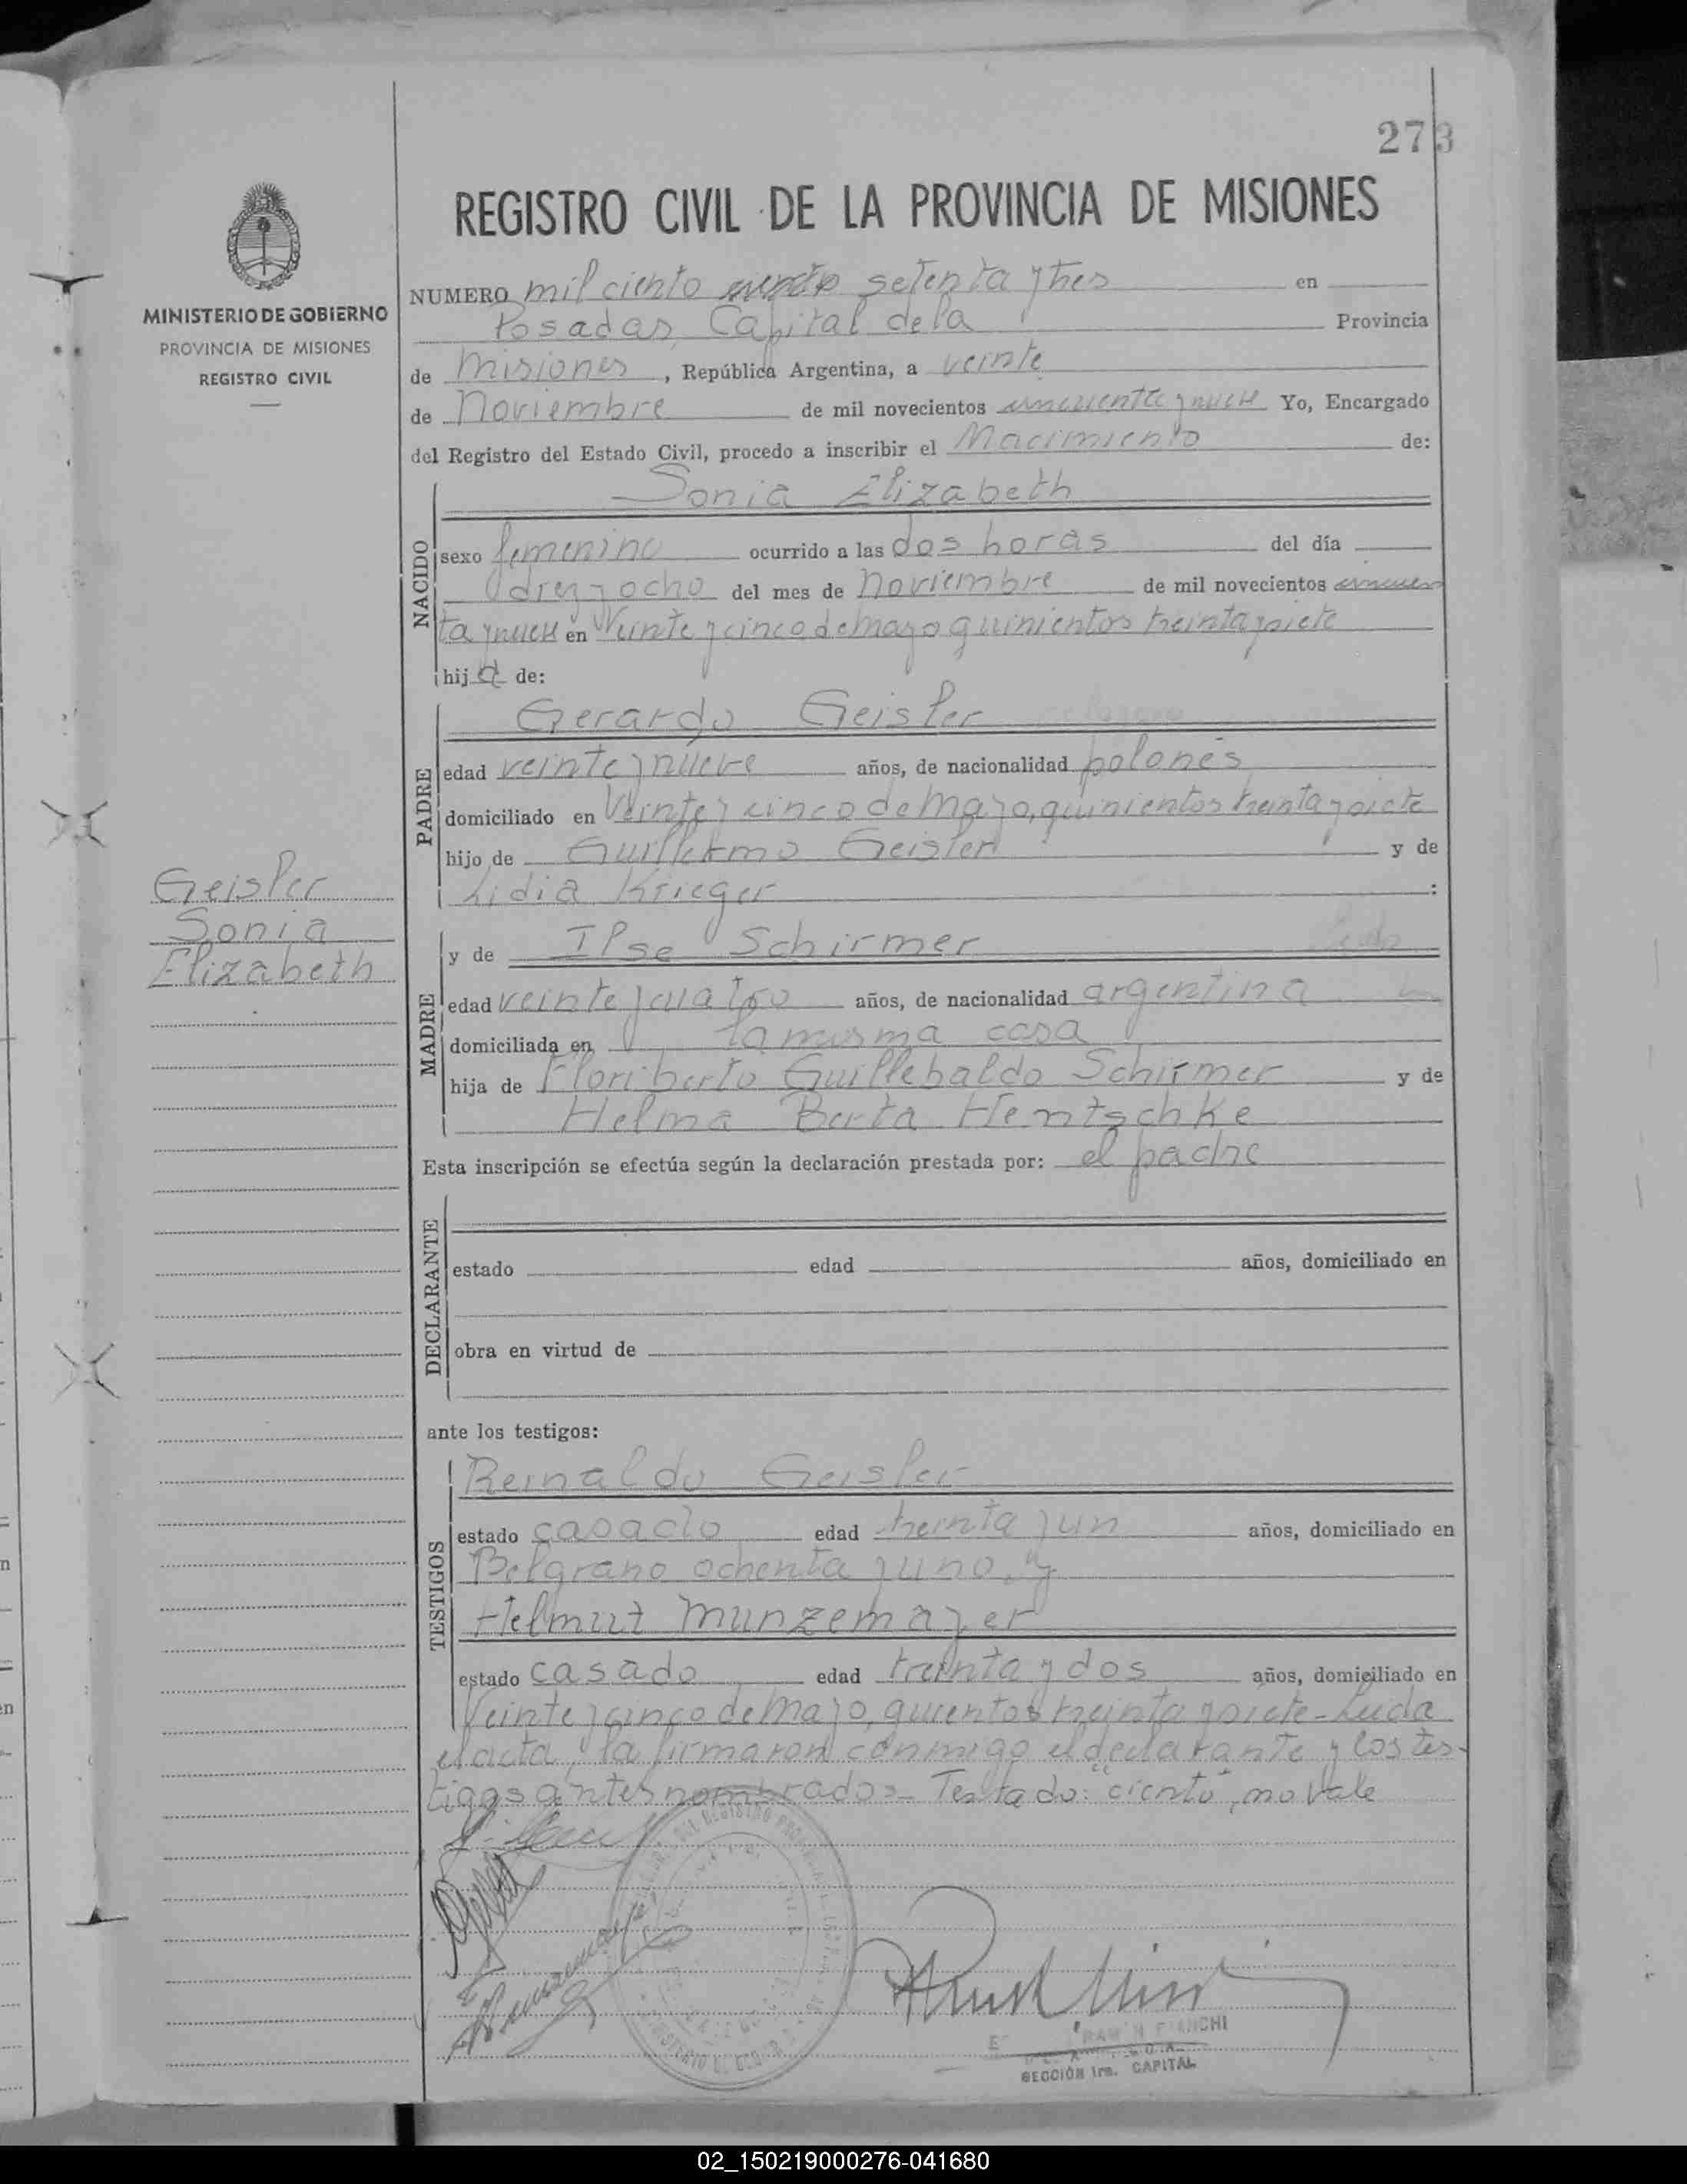 273
REGISTRO CIVIL DE LA PROVINCIA DE MISIONES
MINISTERIO DE GOBIERNO
PROVINCIA DE MISIONES
REGISTRO CIVIL
NUMERO mil ciento ciento setenta y tres en
Posadas, Capital de la Provincia
de Misiones, República Argentina, a veinte
de Noviembre de mil novecientos cincuenta y nueve Yo, Encargado
del Registro del Estado Civil, procedo a inscribir el Nacimiento de:
NACIDO
Sonia Elizabeth
sexo femenino ocurrido a las dos horas del día
diez y ocho del mes de Noviembre de mil novecientos cincuen
ta y nueve en Veinte y cinco de mayo quinientos treinta y siete
hija de:
PADRE
Gerardo Geisler
edad veinte y nueve años, de nacionalidad polonés
domiciliado en Veinte y cinco de Mayo, quinientos treinta y siete
hijo de Guillermo Geisler y de
Lidia Krieger :
Geisler
Sonia
Elizabeth
MADRE
y de Ilse Schirmer
edad veinte y cuatro años, de nacionalidad argentina
domiciliada en la misma casa
hija de Floriberto Guillebaldo Schirmer y de
Helma Berta Hentschke
Esta inscripción se efectúa según la declaración prestada por: el padre
DECLARANTE
estado edad años, domiciliado en
obra en virtud de
ante los testigos:
TESTIGOS
Reinaldo Geisler
estado casado edad treinta y un años, domiciliado en
Belgrano ochenta y uno, y
Helmut Munzemayer
estado casado edad treinta y dos años, domiciliado en
Veinte y cinco de Mayo, quientos treinta y siete - Leida
el acta, la firmaron conmigo el declarante y los tes-
tigos antes nombrados - Testado: "ciento", no vale
SECCIÓN 1ra. CAPITAL
02_150219000276-041680